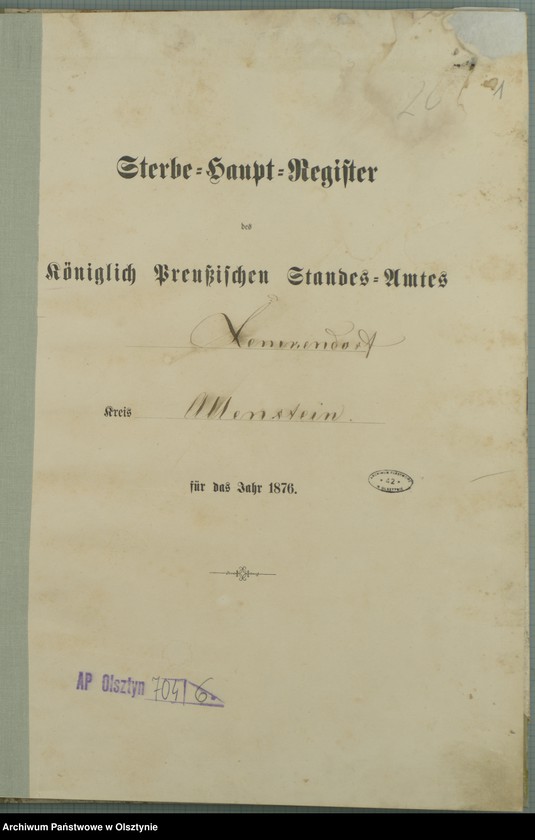 1
Sterbe-Haupt-Register
des
Königlich Preußischen Standes-Amtes
Lemkendorf
Kreis Allenstein.
für das Jahr 1876.
42
AP Olsztyn 704/6
Archiwum Państwowe w Olsztynie